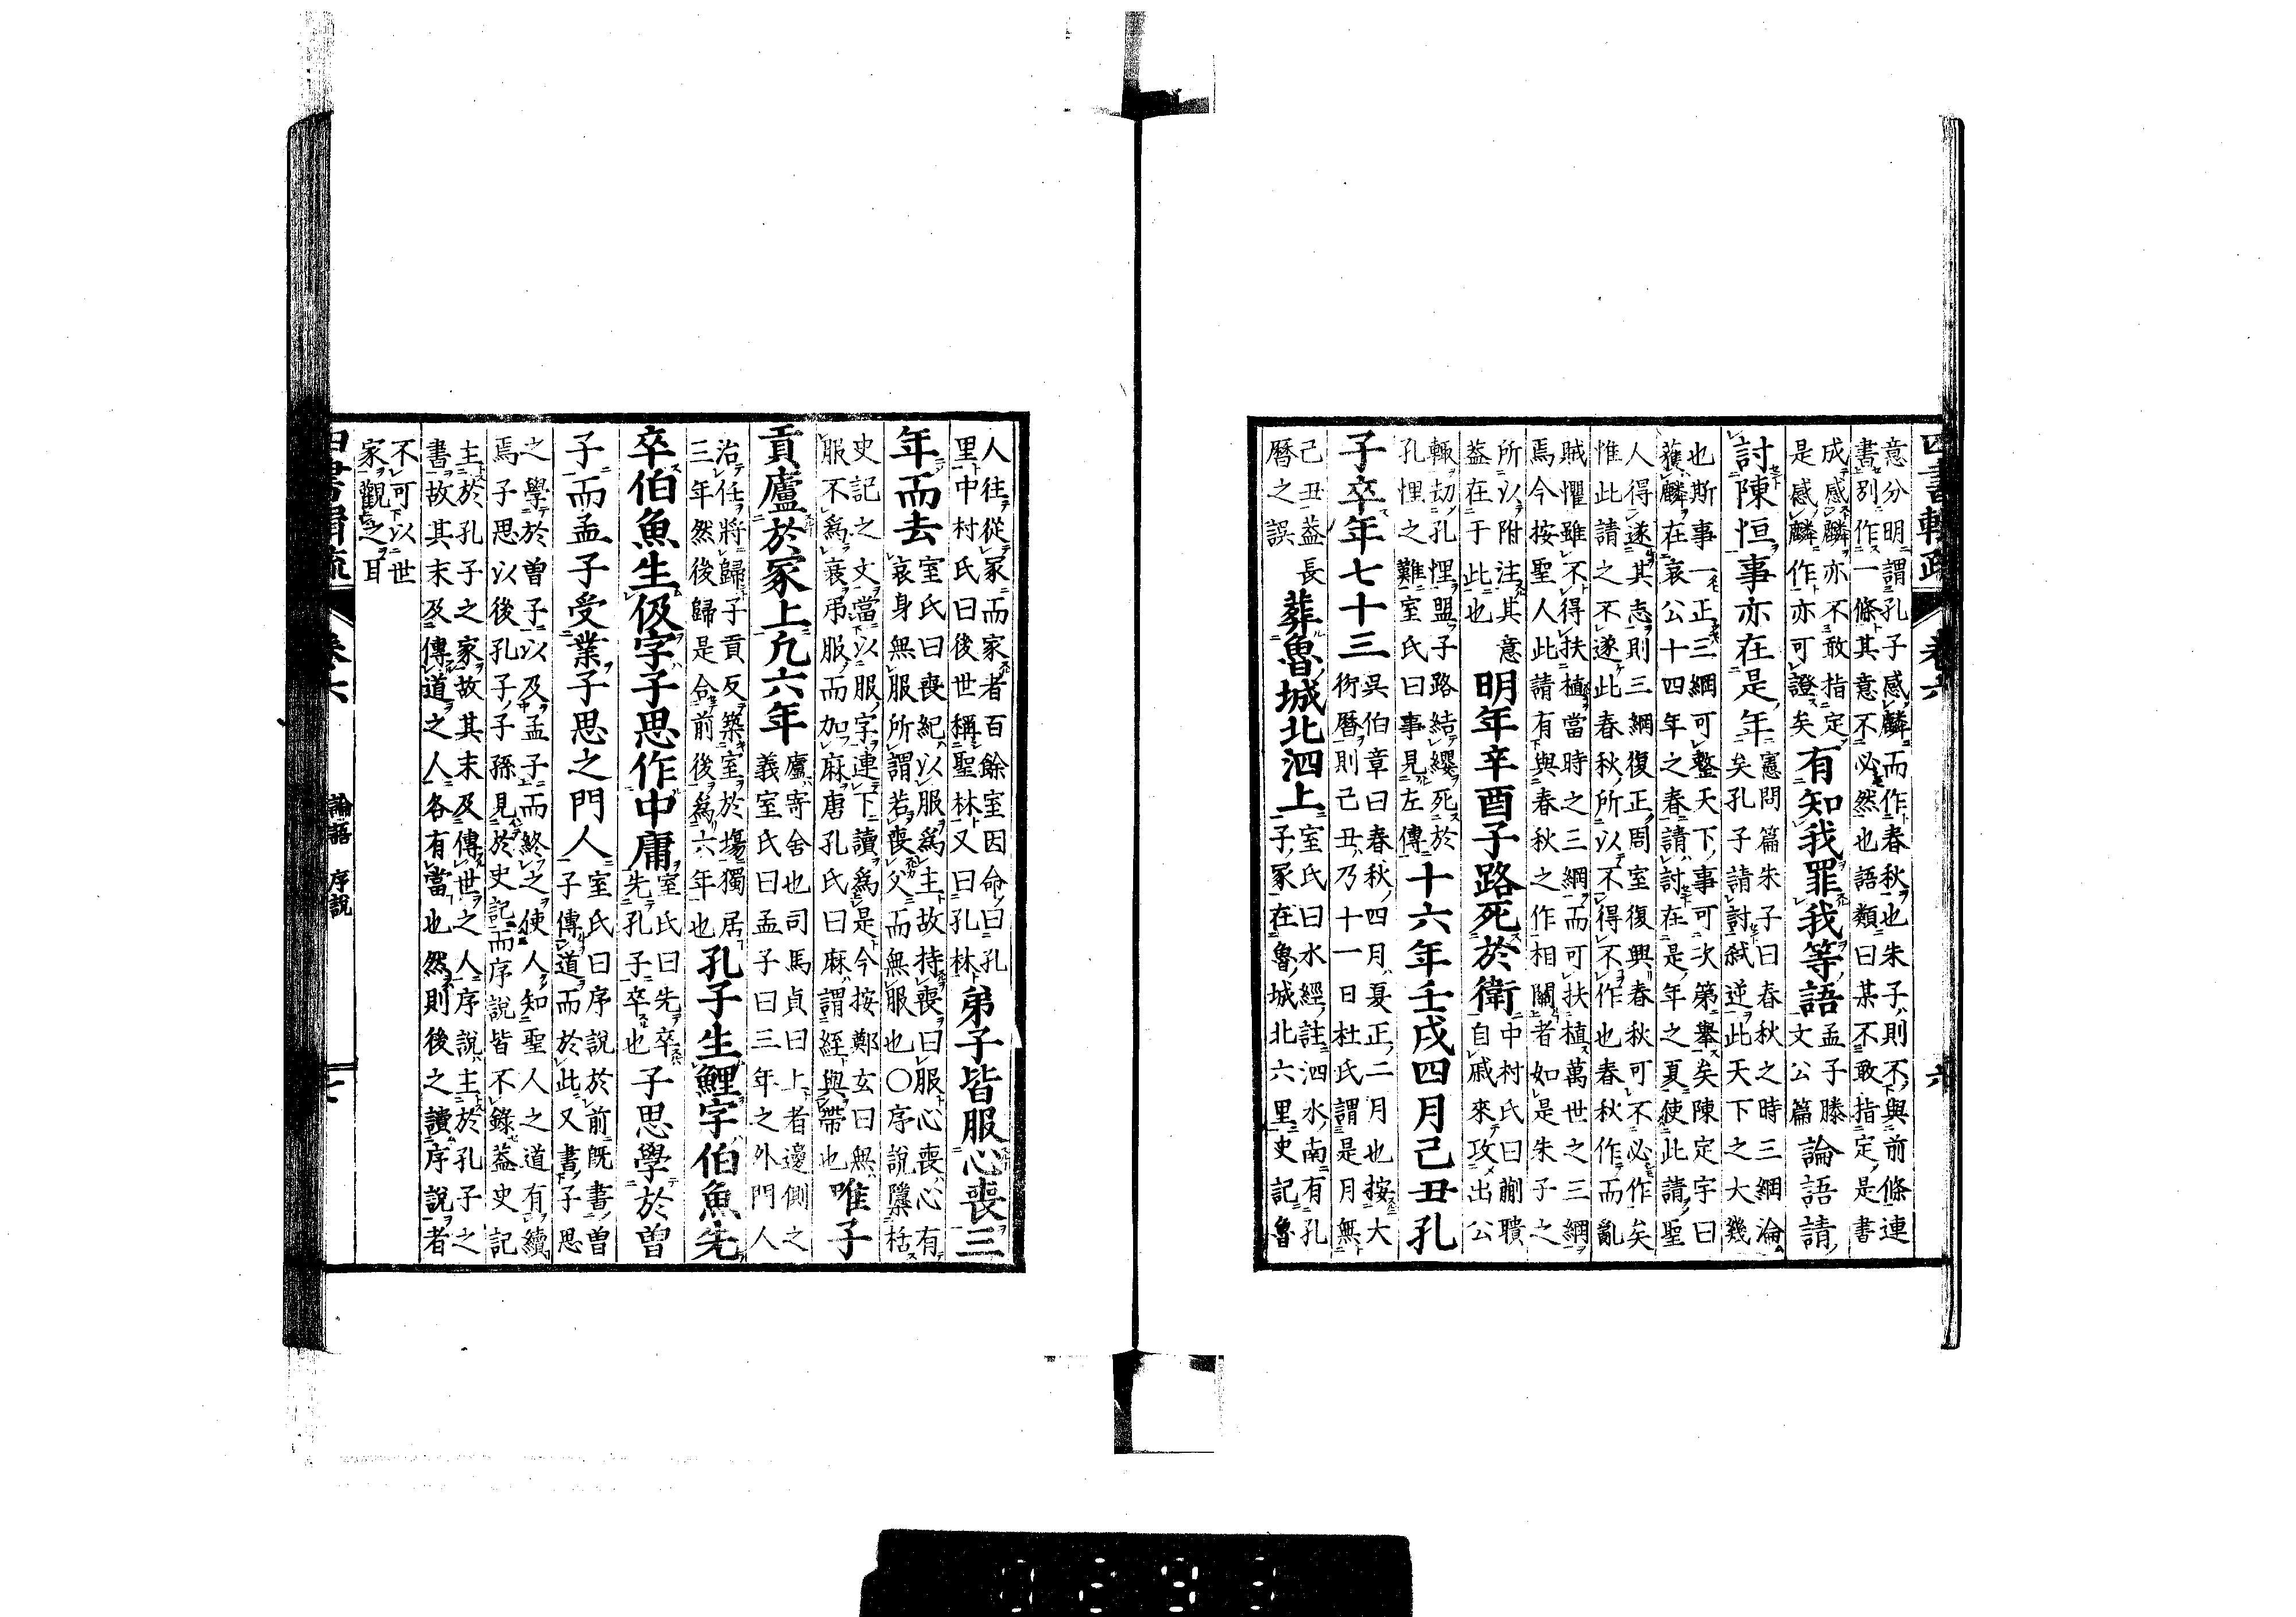 四書輯疏 卷六 六
意分明謂孔子感麟而作春秋也朱子則不與前條連
書別作一條其意不必然也語類曰某不敢指定是書
成感麟亦不敢指定
是感麟作亦可證矣
有知我罪我等語
孟子滕
文公篇
論語請
討陳恒事亦在是年
憲問篇朱子曰春秋之時三綱淪
矣孔子請討弒逆此天下之大幾
也斯事一正三綱可整天下事可次第舉矣陳定宇曰
獲麟在哀公十四年之春請討在是年之夏使此請聖
人得遂其志則三綱復正周室復興春秋可不必作矣
惟此請之不遂此春秋所以不得不作也春秋作而亂
賊懼雖不得扶植當時之三綱而可扶植萬世之三綱
焉今按聖人此請有與春秋之作相關者如是朱子之
所以附注其意
蓋在于此也
明年辛酉子路死於衛
中村氏曰蒯聵
自戚來攻出公
輒劫孔悝盟子路結纓死於
孔悝之難室氏曰事見左傳
十六年壬戌四月己丑孔
子卒年七十三
吳伯章曰春秋四月夏正二月也按大
衍曆則己丑乃十一日杜氏謂是月無
己丑蓋長
曆之誤
葬魯城北泗上
室氏曰水經註泗水南有孔
子冢在魯城北六里史記魯
人往從冢而家者百餘室因命曰孔
里中村氏曰後世稱聖林又曰孔林
弟子皆服心喪三
年而去
室氏曰喪紀以服爲主故持喪曰服心喪心有
哀身無服所謂若喪父而無服也○序說檃栝
史記之文當以服字連下讀爲是今按鄭玄曰無
服不爲衰弔服而加麻唐孔氏曰麻謂絰與帶也
唯子
貢廬於冢上凡六年
廬寄舍也司馬貞曰上者邊側之
義室氏曰孟子曰三年之外門人
治任將歸子貢反築室於場獨居
三年然後歸是合前後爲六年也
孔子生鯉字伯魚先
卒伯魚生伋字子思作中庸
室氏曰先卒
先孔子卒也
子思學於曾
子而孟子受業子思之門人
室氏曰序說於前既書曾
子傳道而於此又書子思
之學於曾子以及孟子而終之使人知聖人之道有續
焉子思以後孔子子孫見於史記而序說皆不錄蓋史記
主於孔子之家故其末及傳世之人序說主於孔子之
書故其末及傳道之人各有當也然則後之讀序說者
不可以世
家觀之耳
四書輯疏 卷六 論語 序說 七